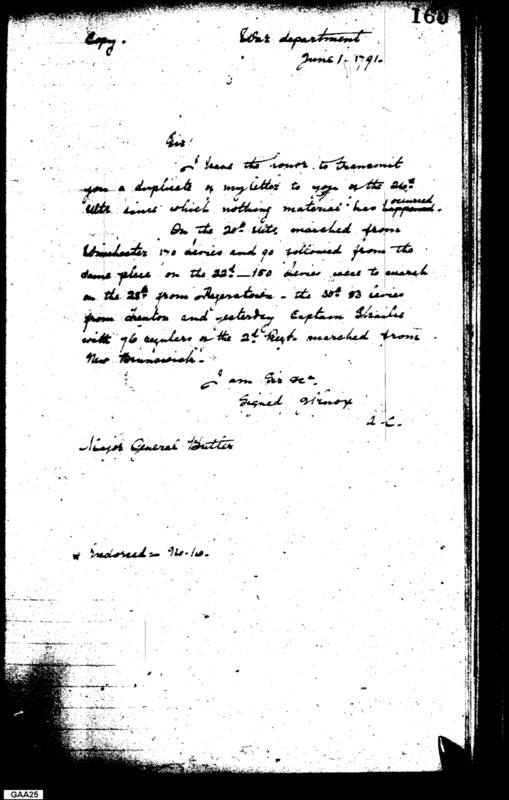 160
Copy.
War department
June 1. 1791.
Sir!
I have the honor to transmit
you a duplicate of my letter to you of the 26th
Ulto since which nothing material has occurred
happened.
On the 20th Ulto marched from
Winchester 170 levies and 90 followed from the
same place on the 22d — 150 levies were to march
on the 25th from Hagerstown - the 30th 83 levies
from Trenton and yesterday Captain
with 96 regulars of the 2d Regt. marched from
New Brunswick.
I am Sir &ca
Signed HKnox
Major General Butler
Endorsed No. 10.
GAA25